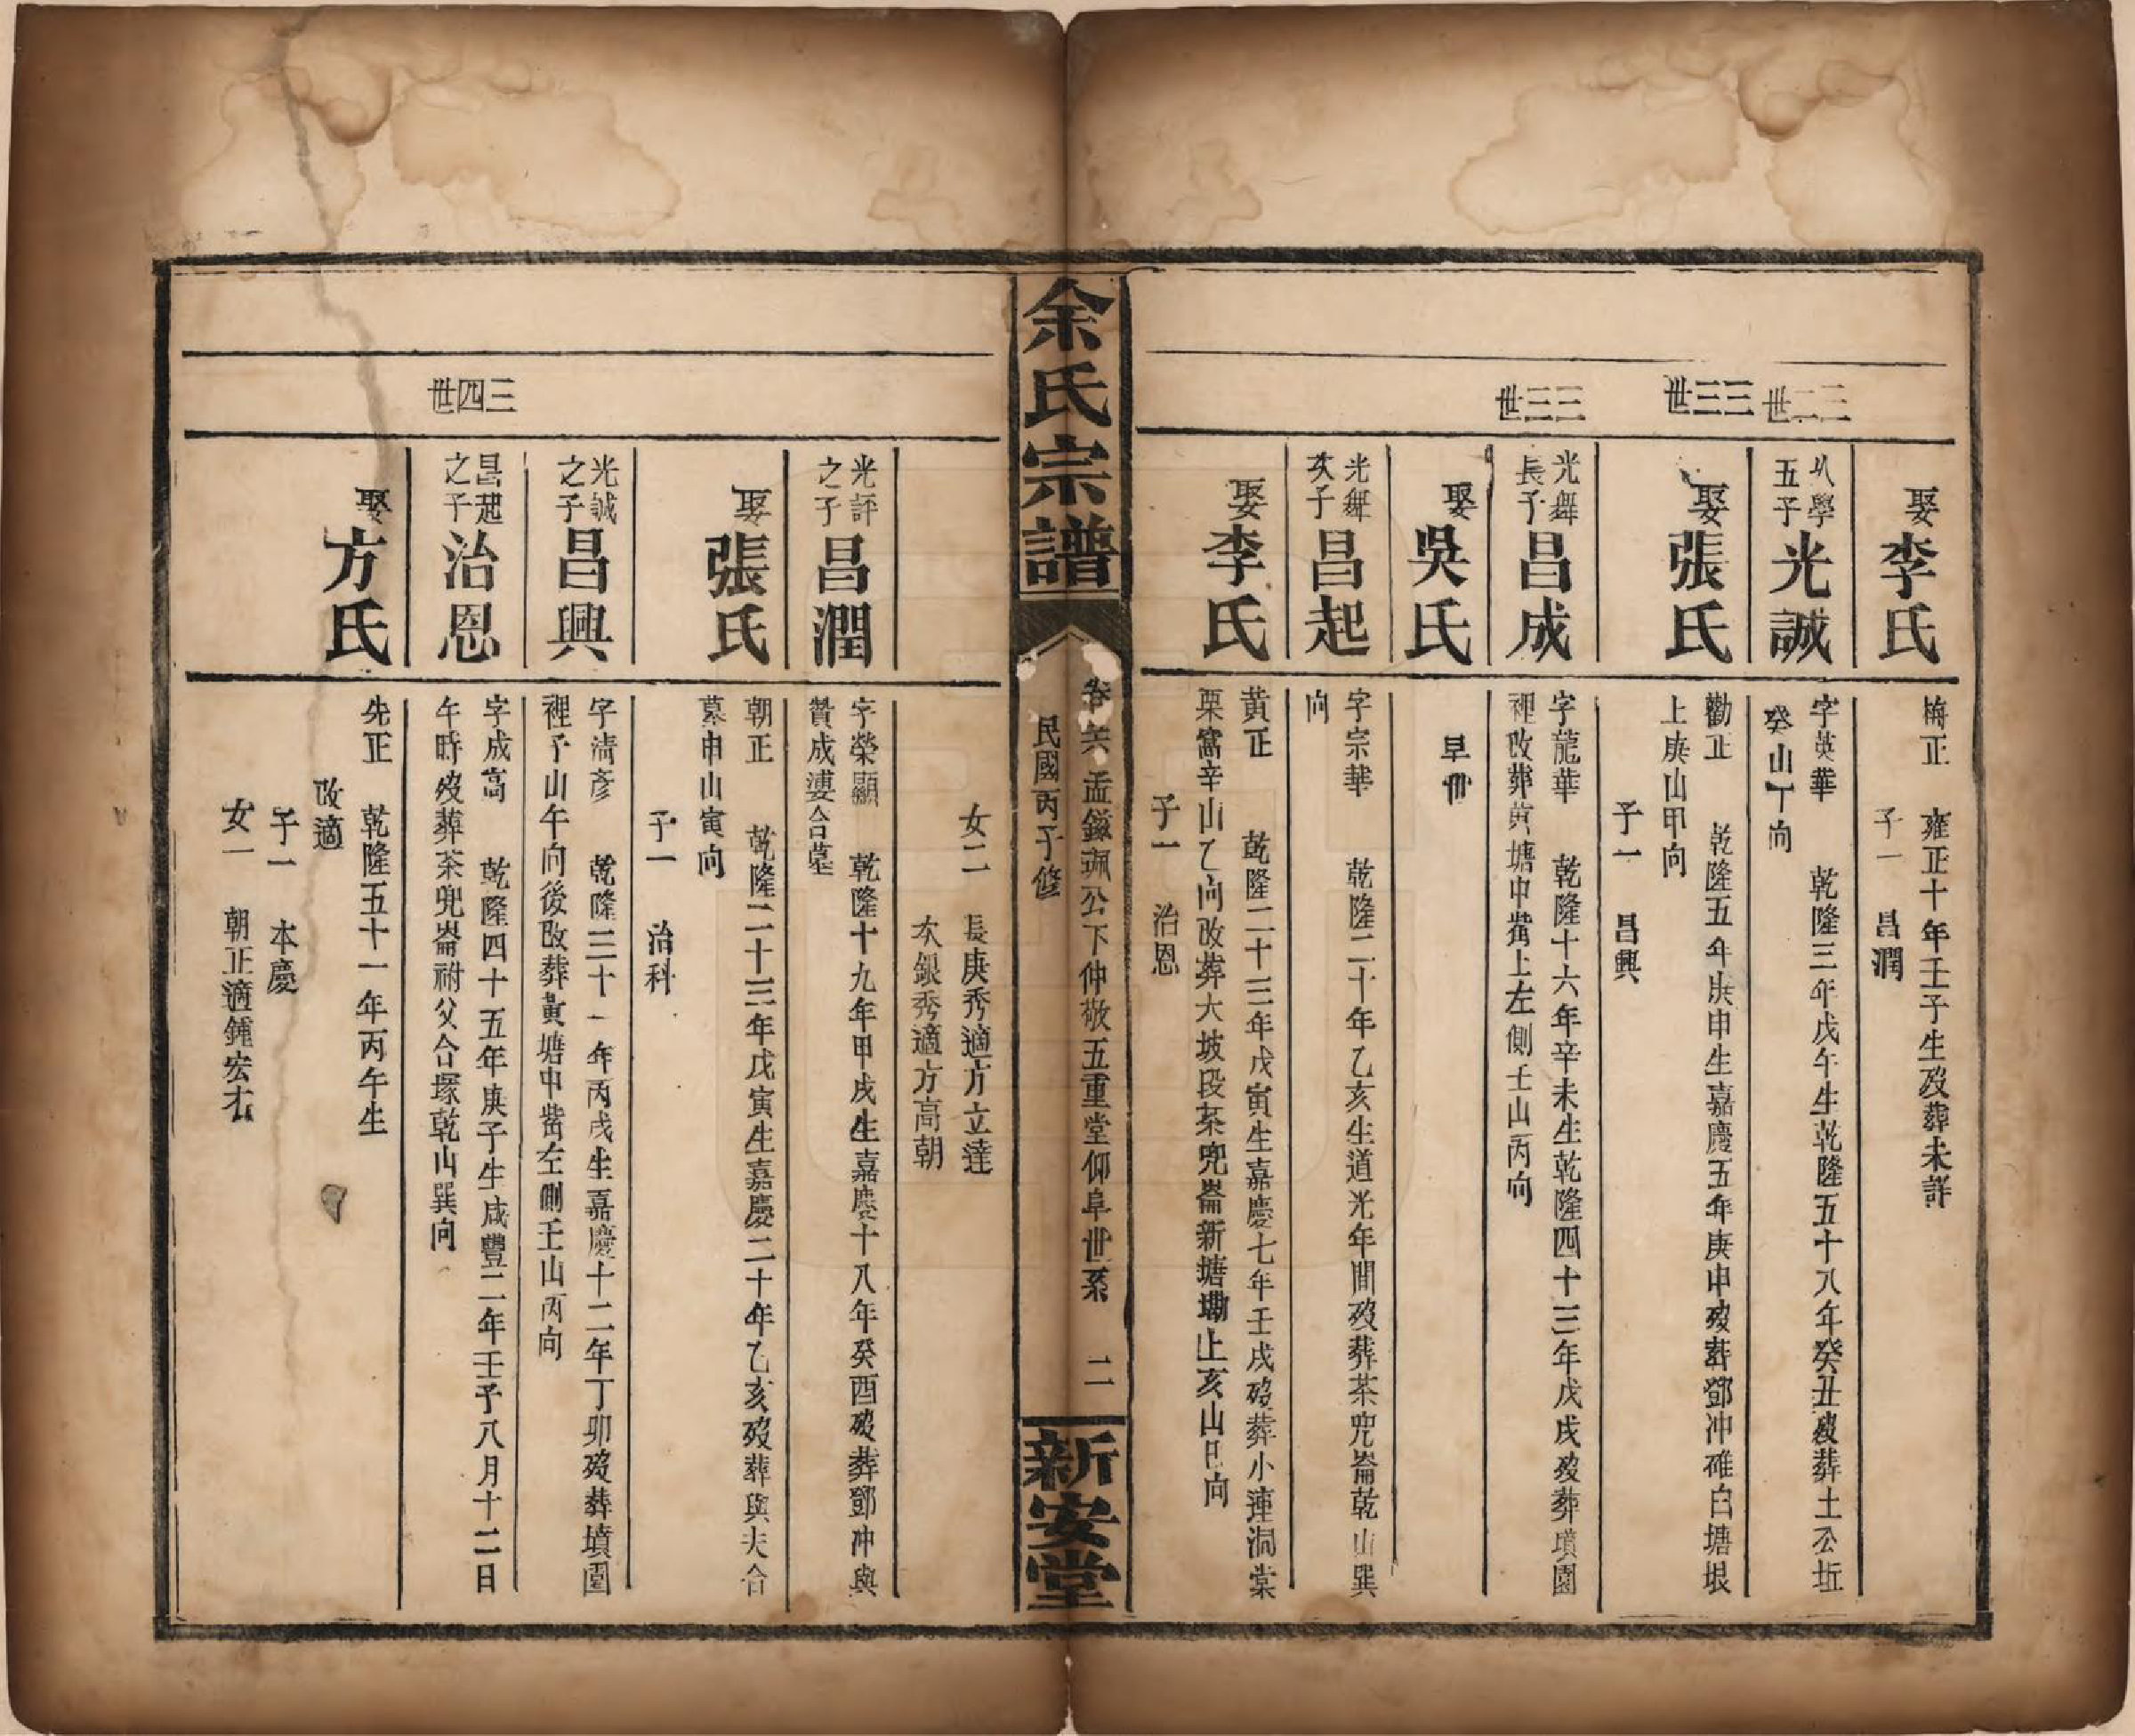 娶李氏
梅正　雍正十年壬子生歿葬未詳
子一　昌潤
三二世
從學五子光誠
字英華　乾隆三年戊午生乾隆五十八年癸丑歿葬土公坵
癸山丁向
三三世
娶張氏
勸正　乾隆五年庚申生嘉慶五年庚申歿葬鄧冲碓白塘垠
上庚山甲向
子一　昌興
三三世
光舞長子昌成
字龍華　乾隆十六年辛未生乾隆四十三年戊戌歿葬墳園
裡改葬黄塘中嘴上左側壬山丙向
娶吳氏
早卌
光舞次子昌起
字宗華　乾隆二十年乙亥生道光年間歿葬茶兜崙乾山巽
向
娶李氏
黄正　乾隆二十三年戊寅生嘉慶七年壬戌歿葬小連洞棠
栗窩辛山乙向改葬大坡段茶兜崙新塘墈上亥山巳向
子一　治恩
余氏宗譜
卷六　孟鎰珮公下仲敬五重堂仰阜世系　二
民國丙子修
新安堂
女二　長庚秀適方立達
次銀秀適方高朝
光評之子昌潤
字榮顯　乾隆十九年甲戌生嘉慶十八年癸酉歿葬鄧冲與
贊成婆合墓
娶張氏
朝正　乾隆二十三年戊寅生嘉慶二十年乙亥歿葬與夫合
墓申山寅向
子一　治科
光誠之子昌興
字清彥　乾隆三十一年丙戌生嘉慶十二年丁卯歿葬墳園
裡子山午向後改葬黃塘中嘴左側壬山丙向
三四世
昌起之子治恩
字成高　乾隆四十五年庚子生咸豐二年壬子八月十二日
午時歿葬茶兜崙祔父合塚乾山巽向
娶方氏
先正　乾隆五十一年丙午生
改適
子一　本慶
女一　朝正適鍾宏右